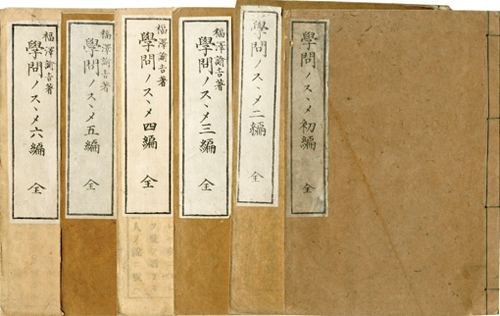 學問ノスヽメ初編 全
學問ノスヽメ二編 全
福澤諭吉著
學問ノスヽメ三編 全
福澤諭吉著
學問ノスヽメ四編 全
福澤諭吉著
學問ノスヽメ五編 全
福澤諭吉著
學問ノスヽメ六編 全